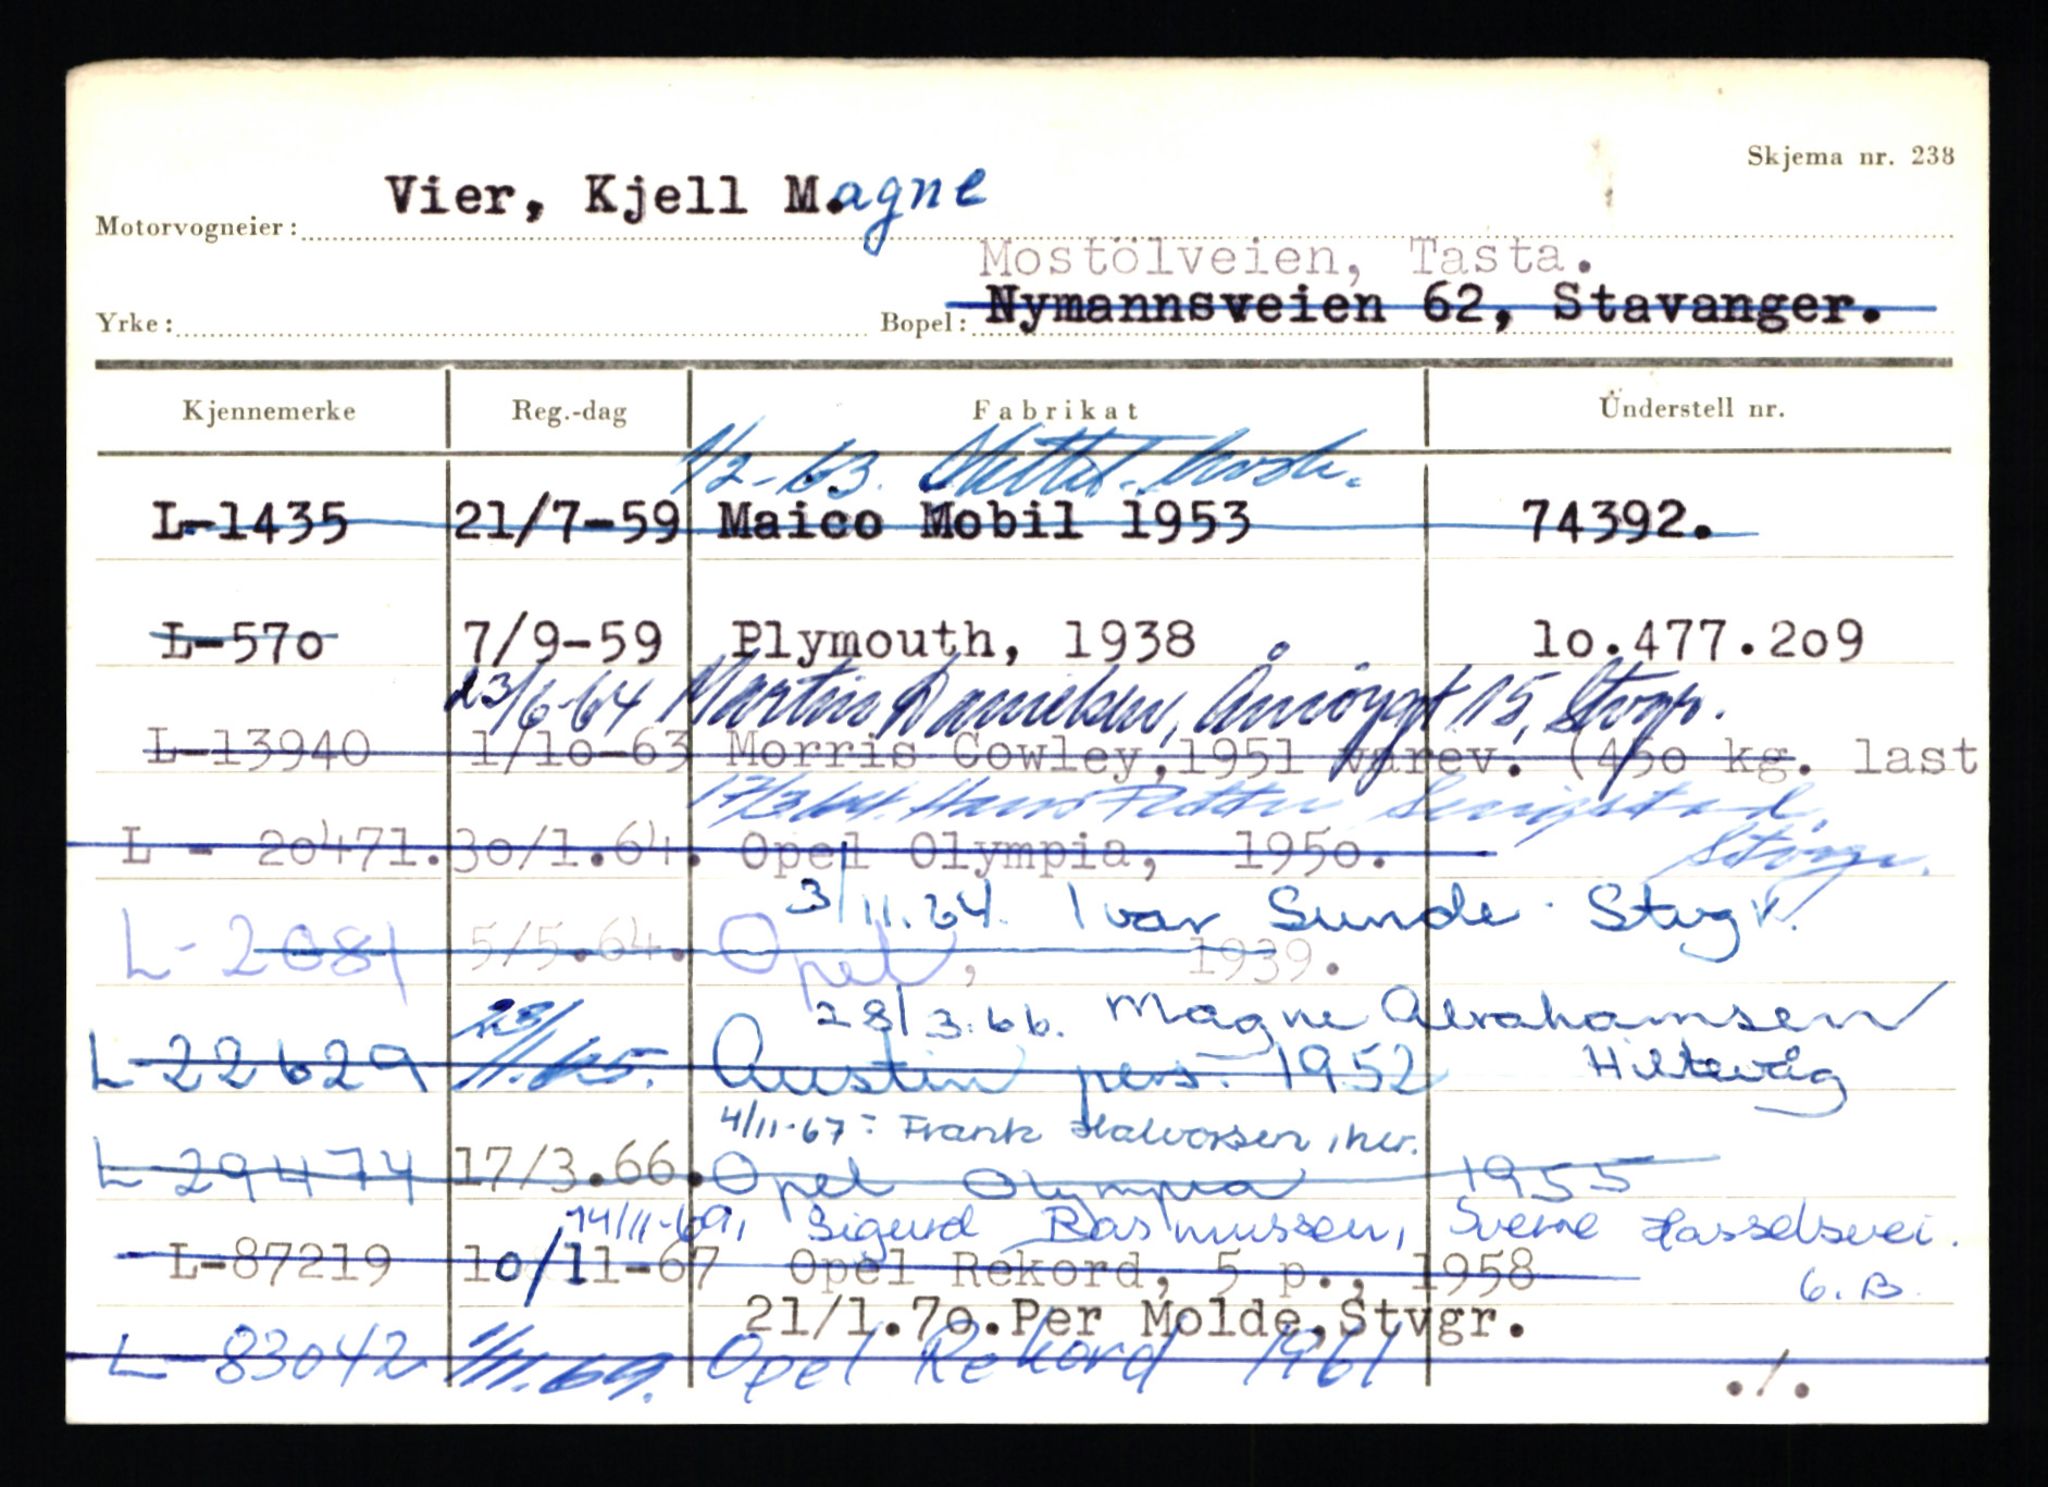 Skjema nr. 238
Motorvogneier: Vier, Kjell M.agne
Mostölveien, Tasta.
Yrke: Bopel: Nymannsveien 62, Stavanger.
Kjennemerke Reg.-dag Fabrikat Understell nr.
1/2-63.
L-1435 21/7-59 Maico Mobil 1953 74392.
L-57o 7/9-59 Plymouth, 1938 lo.477.2o9
23/6-64 Martin Danielsen, Åmøygt 15, Stvgr.
L-13940 1/10-63 Morris Cowley,1951 varev. (450 kg. last
17/3.64. Hans Petter
L - 20471. 30/1.64. Opel Olympia, 1950.
Stvgr.
3/11.64. Ivar Sunde. Stvgr.
L-2081 5/5.64. Opel, 1939.
28/3.66. Magne Abrahamsen
L-22629 23/11.65. Austin pers. 1952 Hiltevåg
4/11-67: Frank Halvorsen, her.
L-29474 17/3.66. Opel Olympia 1955
14/11-69, Sigurd Rasmussen, Sverre Hasselsvei.
L-87219 10/11-67 Opel Rekord, 5 p., 1958 6.B.
21/1.7o.Per Molde,Stvgr.
L-83042 1/11.69. Opel Rekord 1961
./.